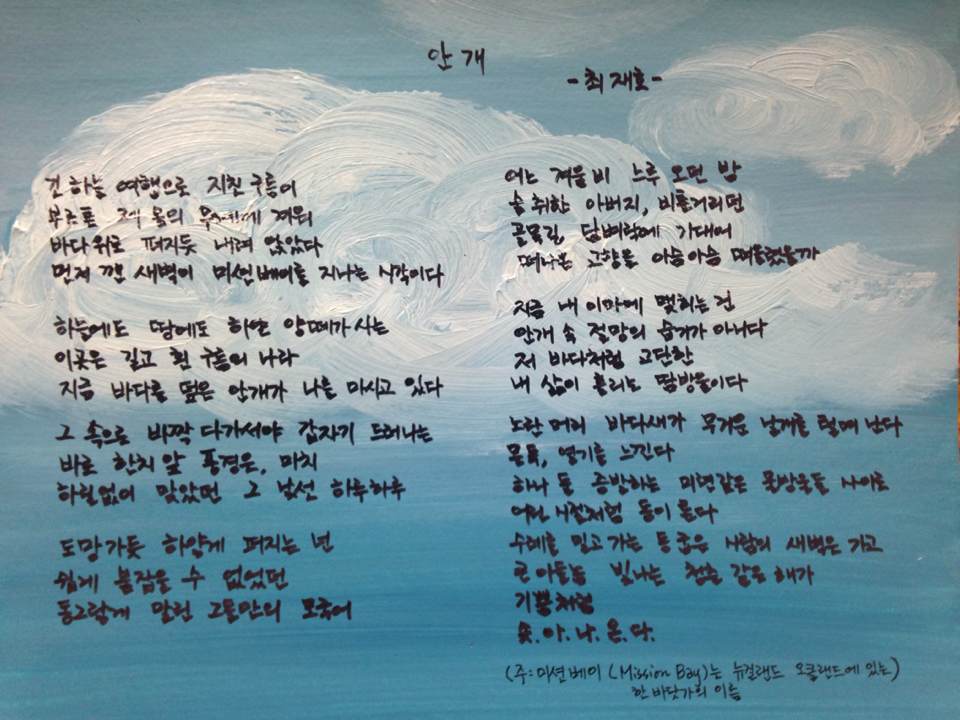 안개
- 최재호 -
긴 하늘 여행으로 지친 구름이
부르튼 제 몸의 무게에 겨워
바다위로 퍼지듯 내려 앉았다
먼저 깬 새벽이 미션베이를 지나는 시각이다
하늘에도 땅에도 하얀 양떼가 사는
이곳은 길고 흰 구름의 나라
지금 바다를 덮은 안개가 나를 마시고 있다
그 속으로 바짝 다가서야 갑자기 드러나는
바로 한치 앞 풍경은, 마치
하릴없이 맞았던 그 낯선 하루하루
도망가듯 하얗게 퍼지는 넌
쉽게 붙잡을 수 없었던
동그랗게 말린 그들만의 모국어
어느 겨울비 느루 오던 밤
술 취한 아버지, 비틀거리던
골목길 담벼락에 기대어
떠나온 고향을 아슴아슴 떠올렸을까
지금 내 이마에 맺히는 건
안개 속 절망의 습기가 아니다
저 바다처럼 고단한
내 삶이 흘리는 땀방울이다
노란 머리 바다새가 무거운 날개를 털며 난다
문득, 열기를 느낀다
하나 둘 증발하는 미련같은 물방울들 사이로
어린 시절처럼 동이 튼다
수레를 밀고 가는 등 굽은 사람의 새벽은 가고
큰아들놈 빛나는 청춘 같은 해가
기쁨처럼
솟.아.나.온.다.
(주:미션베이 (Mission Bay)는 뉴질랜드 오클랜드에 있는)
한 바닷가의 이름